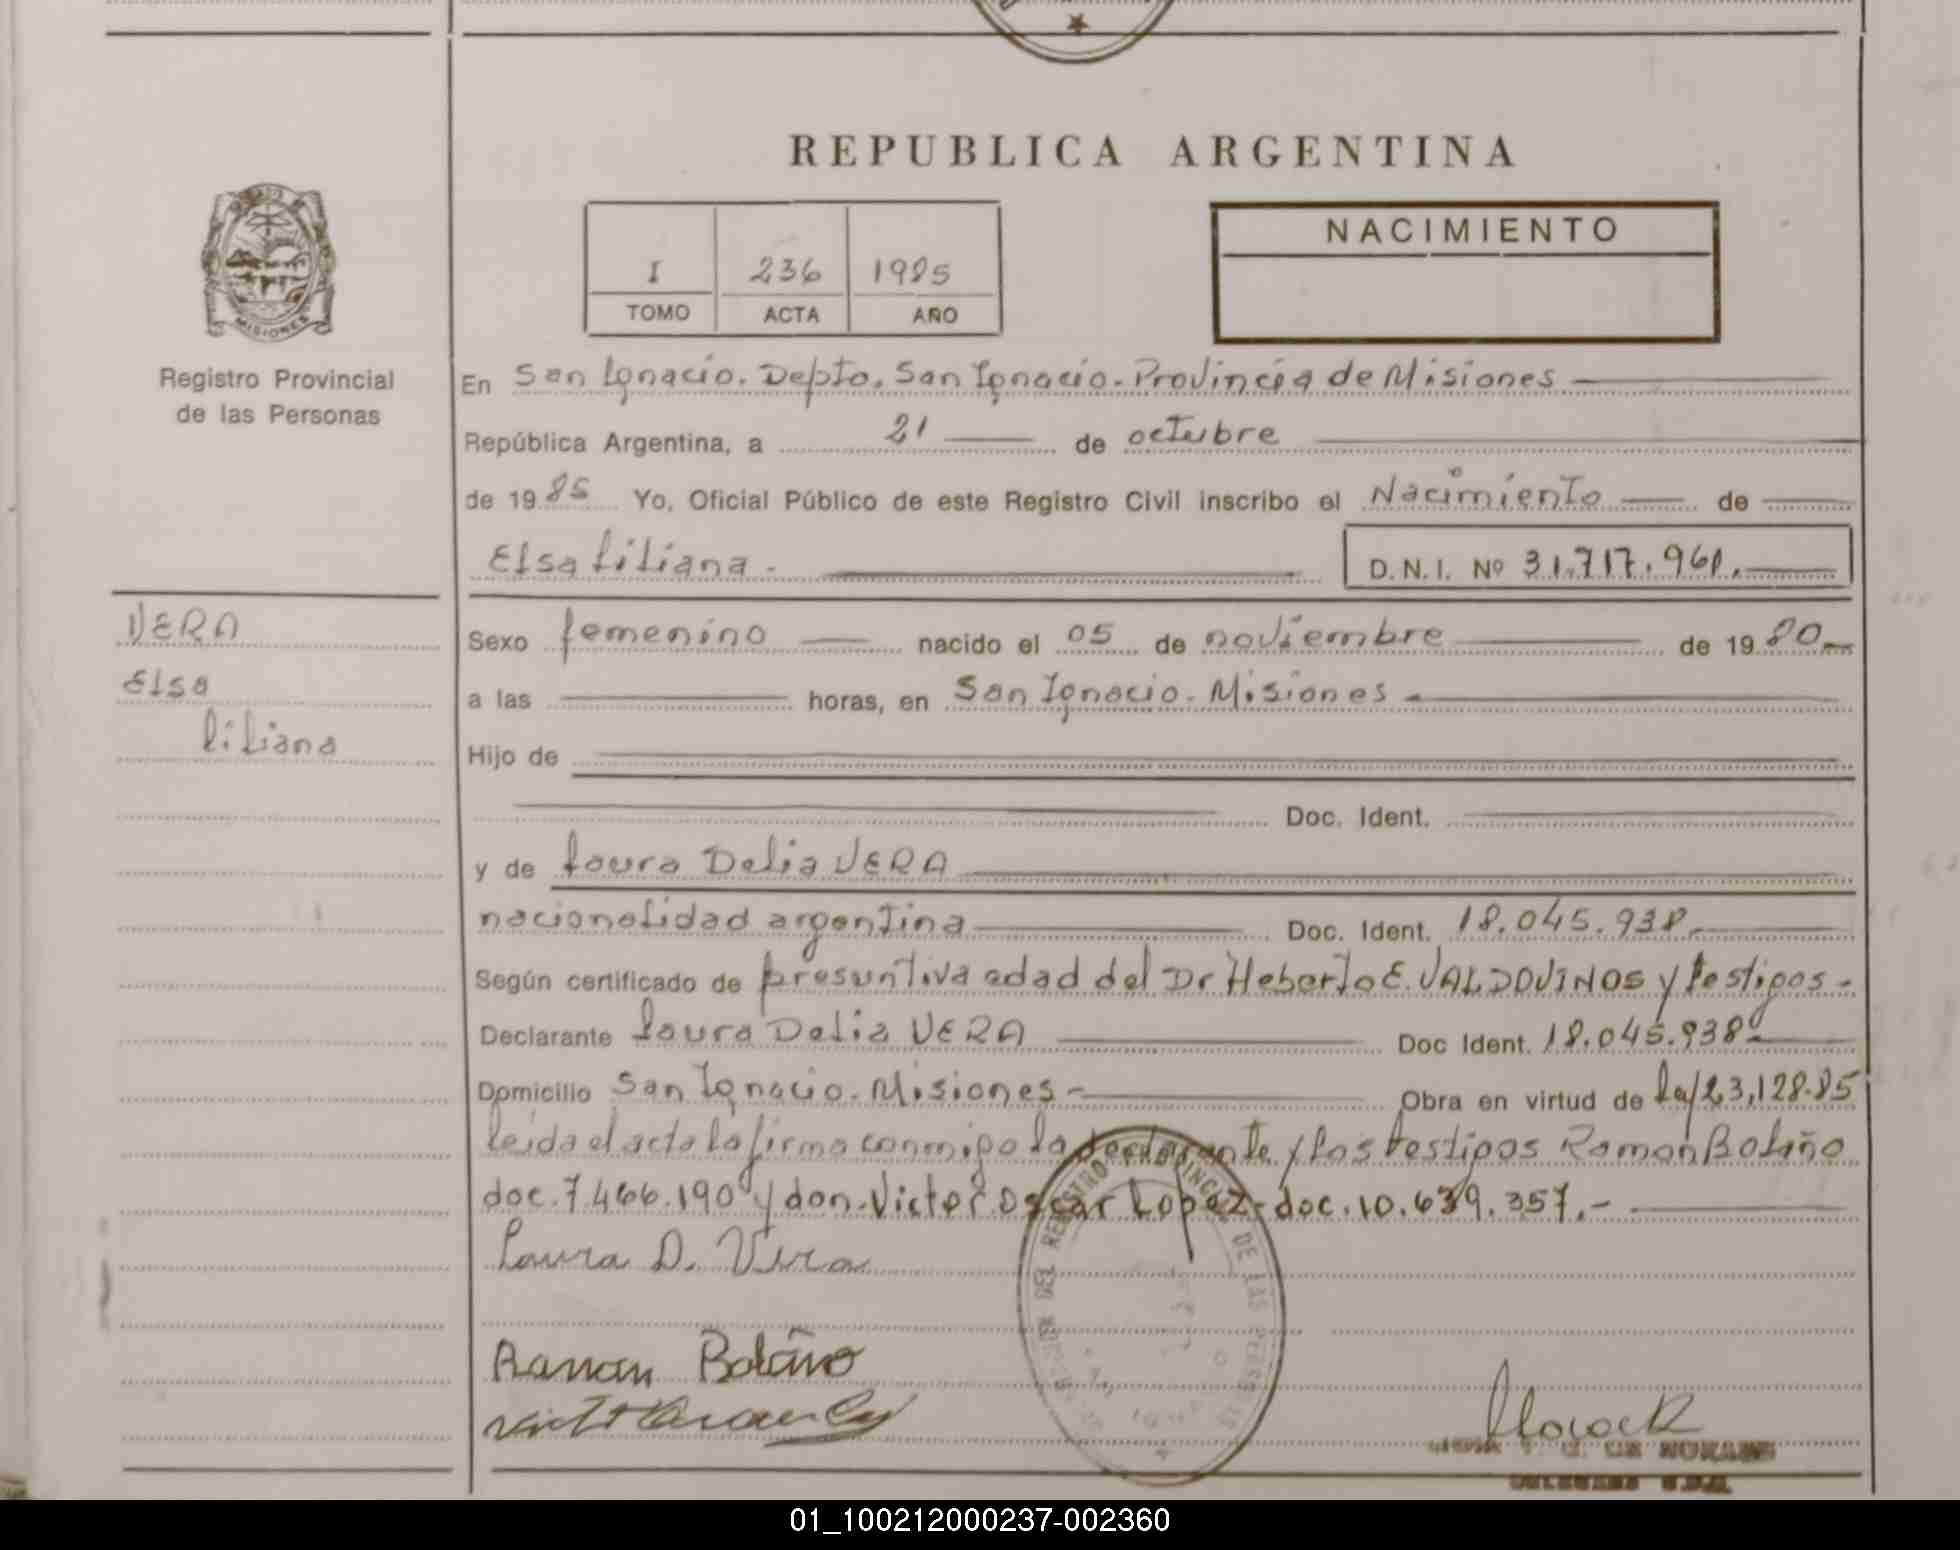 REPUBLICA ARGENTINA
MISIONES
Registro Provincial
de las Personas
I 236 1985
TOMO ACTA AÑO
NACIMIENTO
En San Ignacio. Depto. San Ignacio. Provincia de Misiones
República Argentina, a 21 de octubre
de 1985 Yo, Oficial Público de este Registro Civil inscribo el Nacimiento de
Elsa Liliana. D.N.I. Nº 31.717.961.
VERA
Elsa
Liliana
Sexo femenino nacido el 05 de noviembre de 1980
a las horas, en San Ignacio. Misiones
Hijo de
Doc. Ident.
y de Laura Delia VERA
nacionalidad argentina Doc. Ident. 18.045.938.
Según certificado de presuntiva edad del Dr Heberto E. VALDOVINOS y testigos-
Declarante Laura Delia VERA Doc Ident. 18.045.938
Domicilio San Ignacio. Misiones- Obra en virtud de la/23,128.85
leida el acta la firma conmigo la declarante y los testigos Ramón Bolaño
doc. 7.466.190 y don. Victor Oscar Lopez- doc. 10.639.357.-
Laura D. Vera
Ramon Bolaño
01_100212000237-002360